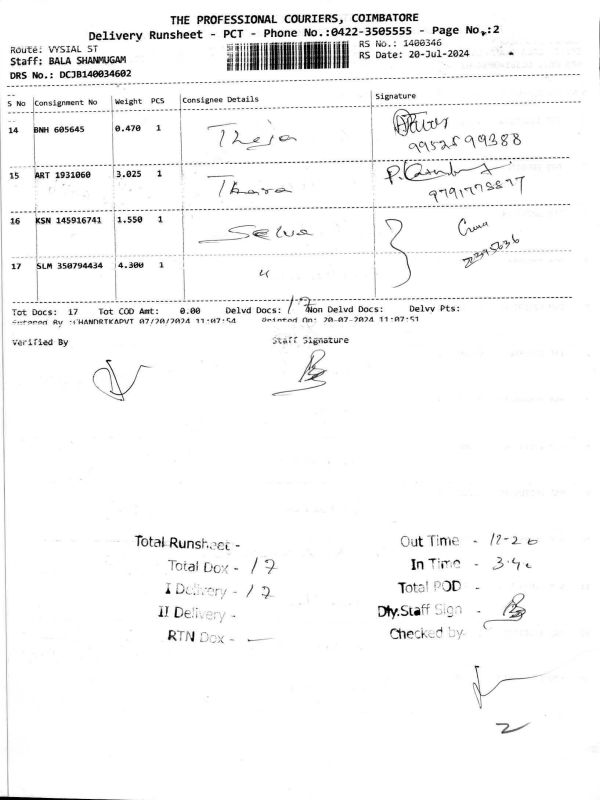 THE PROFESSIONAL COURIERS, COIMBATORE
Delivery Runsheet - PCT - Phone No.:0422-3505555 - Page No.:2
Route: VYSIAL ST
RS No.: 1400346
Staff: BALA SHANMUGAM
RS Date: 20-Jul-2024
DRS No.: DCJB140034602
S No Consignment No Weight PCS Consignee Details Signature
14 BNH 605645 0.470 1 Theja
15 ART 1931060 3.025 1 Thara
16 KSN 145916741 1.550 1 Selva
17 SLM 350794434 4.300 1 "
Tot Docs: 17 Tot COD Amt: 0.00 Delvd Docs: 17 Non Delvd Docs: Delvy Pts:
Entered By :CHANDRIKAPVT 07/20/2024 11:07:54 Printed On: 20-07-2024 11:07:51
Verified By Staff Signature
Total Runsheet -
Out Time -
Total Dox - 17
In Time -
I Delivery - 17
Total POD -
II Delivery -
Dly.Staff Sign -
RTN Dox - —
Checked by
2